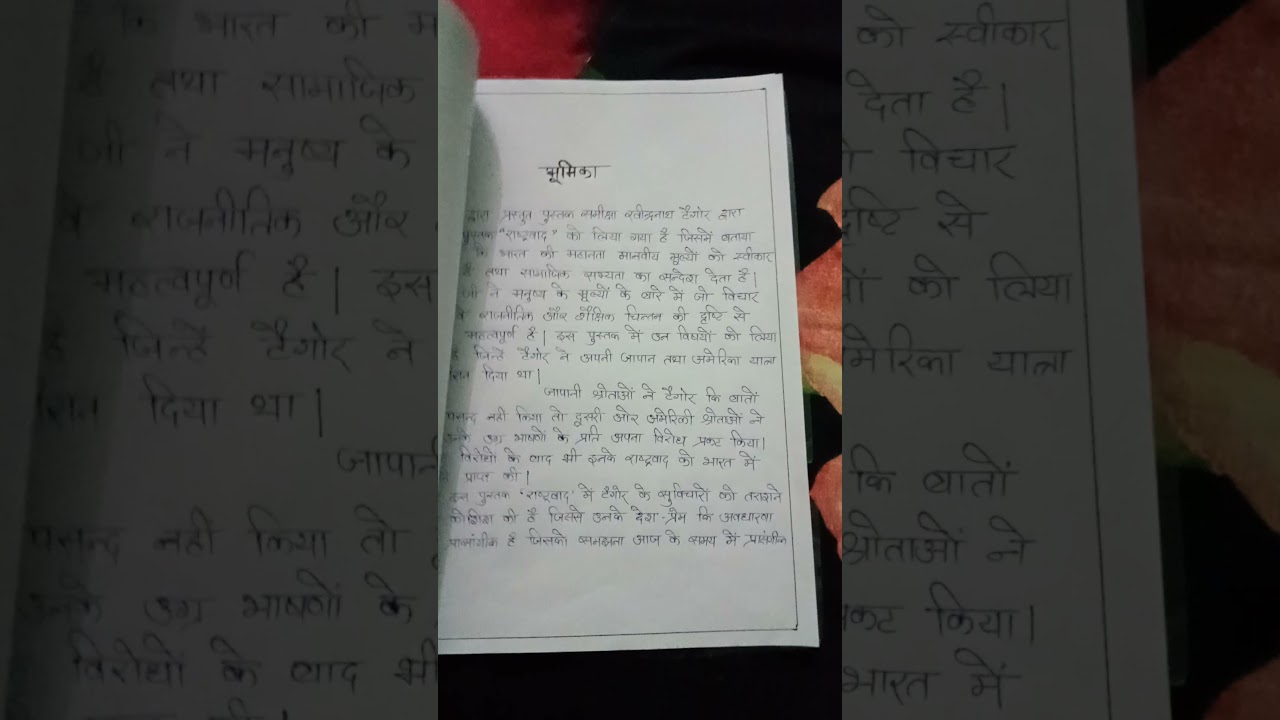 भूमिका
द्वारा प्रस्तुत पुस्तक समीक्षा रवीन्द्रनाथ टैगोर द्वारा
पुस्तक "राष्ट्रवाद" को लिया गया है जिसमें बताया
कि भारत की महानता मानवीय मूल्यों को स्वीकार
है तथा सामाजिक सभ्यता का सन्देश देता है।
जी ने मनुष्य के मूल्यों के बारे में जो विचार
वे राजनीतिक और शैक्षिक चिन्तन की दृष्टि से
महत्वपूर्ण है। इस पुस्तक में उन विषयों को लिया
है जिन्हें टैगोर ने अपनी जापान तथा अमेरिका यात्रा
दिया था।
जापानी श्रोताओं ने टैगोर कि बातों
पसन्द नही किया तो दूसरी ओर अमेरिकी श्रोताओं ने
उनके उग्र भाषणों के प्रति अपना विरोध प्रकट किया।
विरोधों के बाद भी इनके राष्ट्रवाद को भारत में
प्राप्त की।
इस पुस्तक 'राष्ट्रवाद' में टैगोर के सुविचारों को तराशने
कोशिश की है जिससे उनके देश-प्रेम कि अवधारणा
प्रासंगीक है जिसको समझना आज के समय में प्रासंगीक